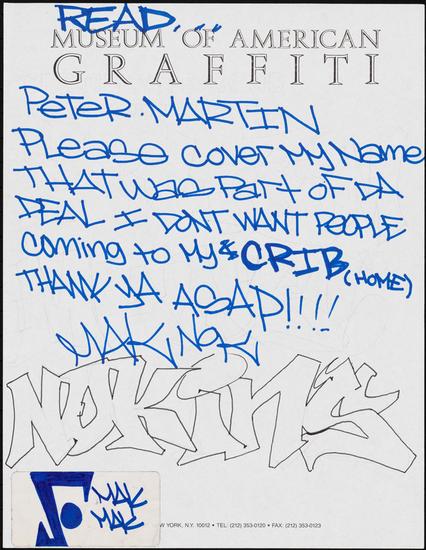 READ....
MUSEUM OF AMERICAN
GRAFFITI
PETER. MARTIN
Please cover My Name
THAT was Part of DA
DEAL I DONT WANT PEOPLE
coming to My & CRIB (HOME)
THANK YA ASAP!!!!
MAK NOK
NOKINS
MAK
MAK
YORK, N.Y. 10012 • TEL: (212) 353-0120 • FAX: (212) 353-0123